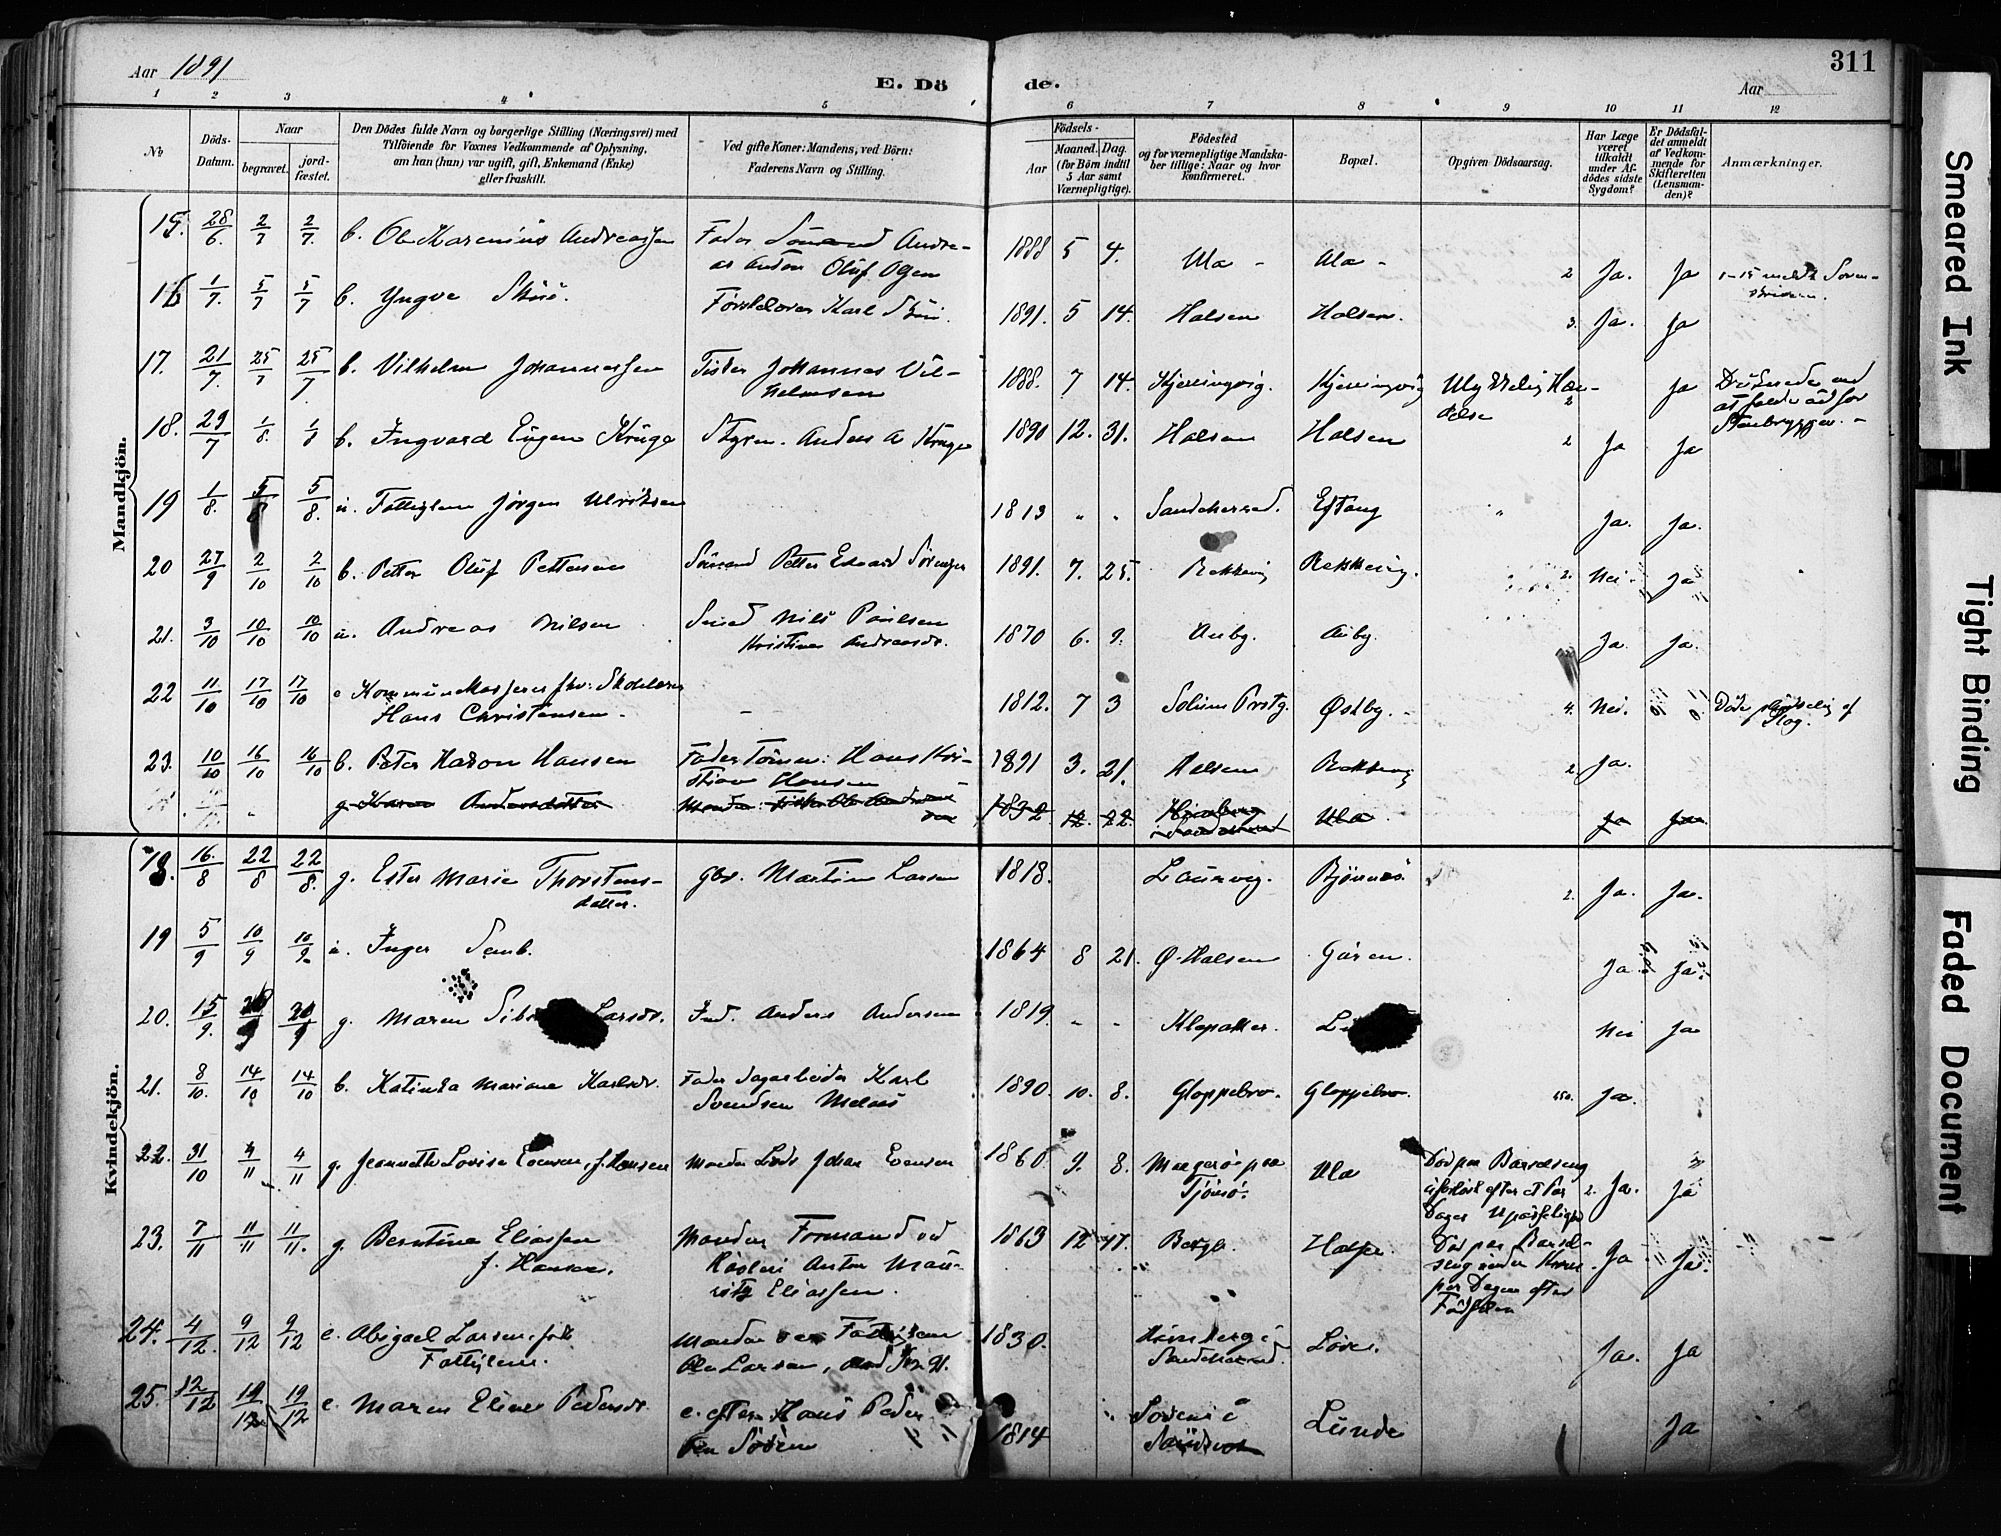 Aar 1891
E. Dö de.
311
Aar
1 2 3 4 5 6 7 8 9 10 11 12
No
Döds-Datum.
Naar
begravet.
jordfæstet.
Den Dödes fulde Navn og borgerlige Stilling (Næringsvei) med
Tilföiende for Voxnes Vedkommende af Oplysning,
om han (hun) var ugift, gift, Enkemand (Enke)
eller fraskilt.
Ved gifte Koner: Mandens, ved Börn:
Faderens Navn og Stilling.
Födsels-
Aar
Maaned. Dag.
(for Börn indtil
5 Aar samt
Værnepligtige).
Födested
og for værnepligtige Mandskaber tillige: Naar og hvor
konfirmeret.
Bopæl.
Opgiven Dödsaarsag.
Har Læge
været
tilkaldt
under Afdödes sidste
Sygdom?
Er Dödsfaldet anmeldt
af Vedkommende for
Skifteretten
(Lensmanden)?
Anmærkninger.
Mandkjön.
15. 28/6. 2/7 2/7. b. Ole Karenius Andreassen Fader Sömand Andreas Anton Oluf Olsen 1888 5 4. Ula - Ula - 2 Ja. Ja
16 1/7. 5/7 5/7 b. Yngve Skui. Förstelærer Karl Skui. 1891. 5 14. Halsen Halsen. 3. Ja. Ja
17. 21/7. 25/7 25/7 b. Vilhelm Johannessen Fisker Johannes Vilhelmsen 1888. 7 14. Kjerringvig. Kjerringvig Ulykkelig Hændelse 2 Ja Druknede ved at falde ud for Stenbryggen. -
18. 29/7 1/8. 1/8 b. Ingvard Eugen Kruge Styrm. Anders A Kruge 1890 12. 31. Halsen Halsen 2 Ja Ja
19 1/8. 5/8 5/8. u. Fattiglem Jörgen Ulriksen 1813 " " Sandeherred. Eftang " Ja. Ja.
20 27/9 2/10 2/10 b. Petter Oluf Pettersen Sömand Petter Edvard Sörensen 1891. 7. 25. Rekkevig Rekkevig. 2. Nei Ja
21. 3/10 10/10 10/10 u. Andreas Nilsen Smed Nils Paulsen Kristine Andreasdr. 1870 6. 9. Auby. Auby. Ja. Ja.
22 11/10 17/10 17/10 e Kommunekasserer fhv. Skolelærer Hans Christensen. - 1812. 7 3 Solum Prstg. Østby. - 4. Nei. Döde pludselig af Slag.
23. 10/10 16/10 16/10 b. Peter Haron Hansen Fader Tömm. Hans Kristian Hansen 1891 3. 21. Halsen Rekkevig 2 Ja.
g. Karen Andersdatter 1832 12. 22. Ula Ja Ja
Kvindekjön.
18. 16/8 22/8 22/8. g. Ester Marie Thorstensdatter. gbr. Martin Larsen 1818. Laurvig. Bjönnes 2. Ja. Ja.
19 5/9 10/9 10/9. u. Inger Semb. 1864 8 21. Ø. Halsen Gåren. Ja. Ja.
20. 15/9. 20/9 g. Maren Larsdr. Ind. Anders Andersen 1819. - - Nei Ja
21. 8/10. 14/10 14/10 b. Katinka Mariane Karlsdr. Fader Sagarbeider Karl Svendsen Melaas 1890. 10. 8. Gloppebro. Gloppebro. Ja.
22. 31/10 4/11 4/11 g. Jeannette Lovise Evensen, f. Hansen Manden Lods Johan Evensen 1860. 9. 8. Margeröe paa Tjömö. Ula Död paa Barselseng uforlöst efter et Par Dages Upasselighed 2. Ja. Ja
23. 7/11 11/11 11/11. g. Berntine Eliassen f. Hansen. Manden Formand ved Anton Mauritz Eliassen. 1863 12 Halsen Död paa Barselseng under Kram par Dagen efter Födselen Ja Ja.
24. 4/12. 9/12 9/12 e. Abigael Larsen, Fattiglem. Manden var Fattiglem Ole Larsen, 1830. Himberg i Sandeherred. Ja. Ja
25. 12/12 19/12 19/12 e. Maren Eline Pedersdr. e. efter Hans Pedersen 1814 Lunde Ja
Smeared Ink
Tight Binding
Faded Document